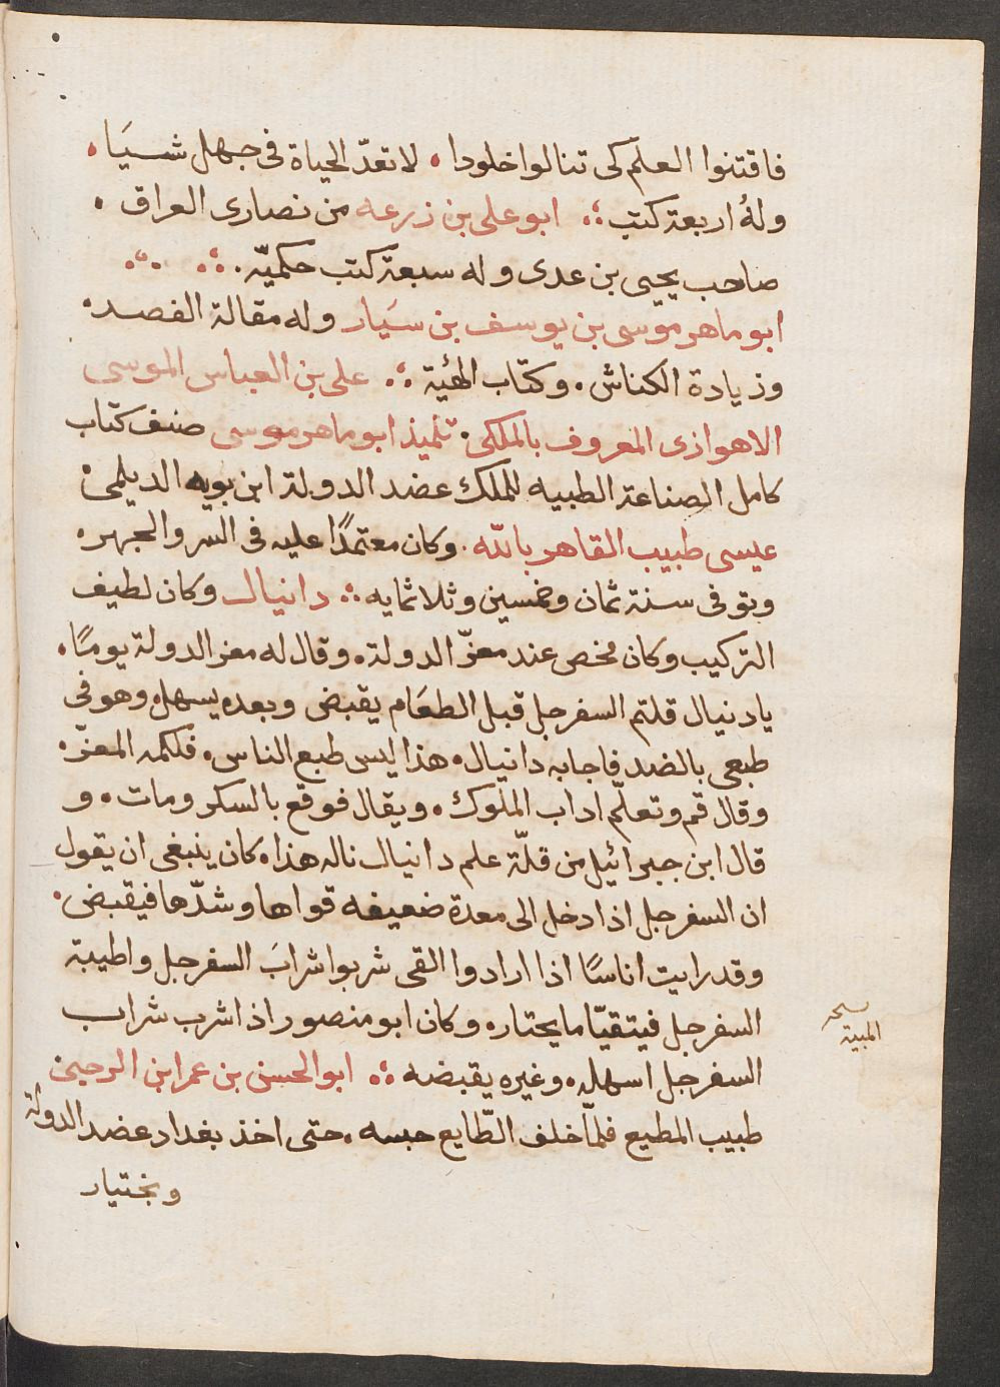 فاقتنوا العلم كى تنالوا خلودا . لا تعدّ الحياة فى جهل شيَا .
ولهُ اربعة كتب ؞ ابو على بن زرعه من نصارى العراق .
صاحب يحيى بن عدى وله سبعة كتب حكميّه . ؞ ؞
ابو ماهر موسى بن يوسف بن سيَار وله مقالة الفصد .
وزيادة الكناش . وكتاب المئية ؞ على بن العباس الموسى
الاهوازى المعروف بالملكى . تلميذ ابو ماهر موسى صنف كتاب
كامل الصناعة الطبيه للملك عضد الدولة ابن بويه الديلمى .
عيسى طبيب القاهر بالله . وكان معتمدًا عليه فى السر والجهر .
وتوفى سنة ثمان وخمسين وثلاثمايه ؞ دانيال وكان لطيف
التركيب وكان مخص عند معزّ الدولة . وقال له معز الدولة يومًا .
يا دنيال قلتم السفرجل قبل الطعَام يقبض وبعده يسهل . وهو فى
طبعى بالضد فاجابه دانيال . هذا ليس طبع الناس . فلكمه المعزّ .
وقال قم وتعلّم اداب الملوك . ويقال فوقع بالسكر ومات . و
قال ابن جبرائيل من قلّة علم دانيال ناله هذا . كان ينبغى ان يقول
ان السفرجل اذا دخل الى معدة ضعيفه قواها وشدّها فيقبض .
وقد رايت اناسًا اذا ارادوا القى شربوا شرابَ السفرجل واطيبة
السفرجل فيتقيّا ما يختاره وكان ابو منصور اذا شرب شراب
السفرجل اسهله . وغيره يقبضه ؞ ابو الحسن بن عمر ابن الرحبى
طبيب المطيع فلمّا خلف الطّايع حبسه . حتى اخذ بغداد عضد الدولة
وبختيار
الميبة